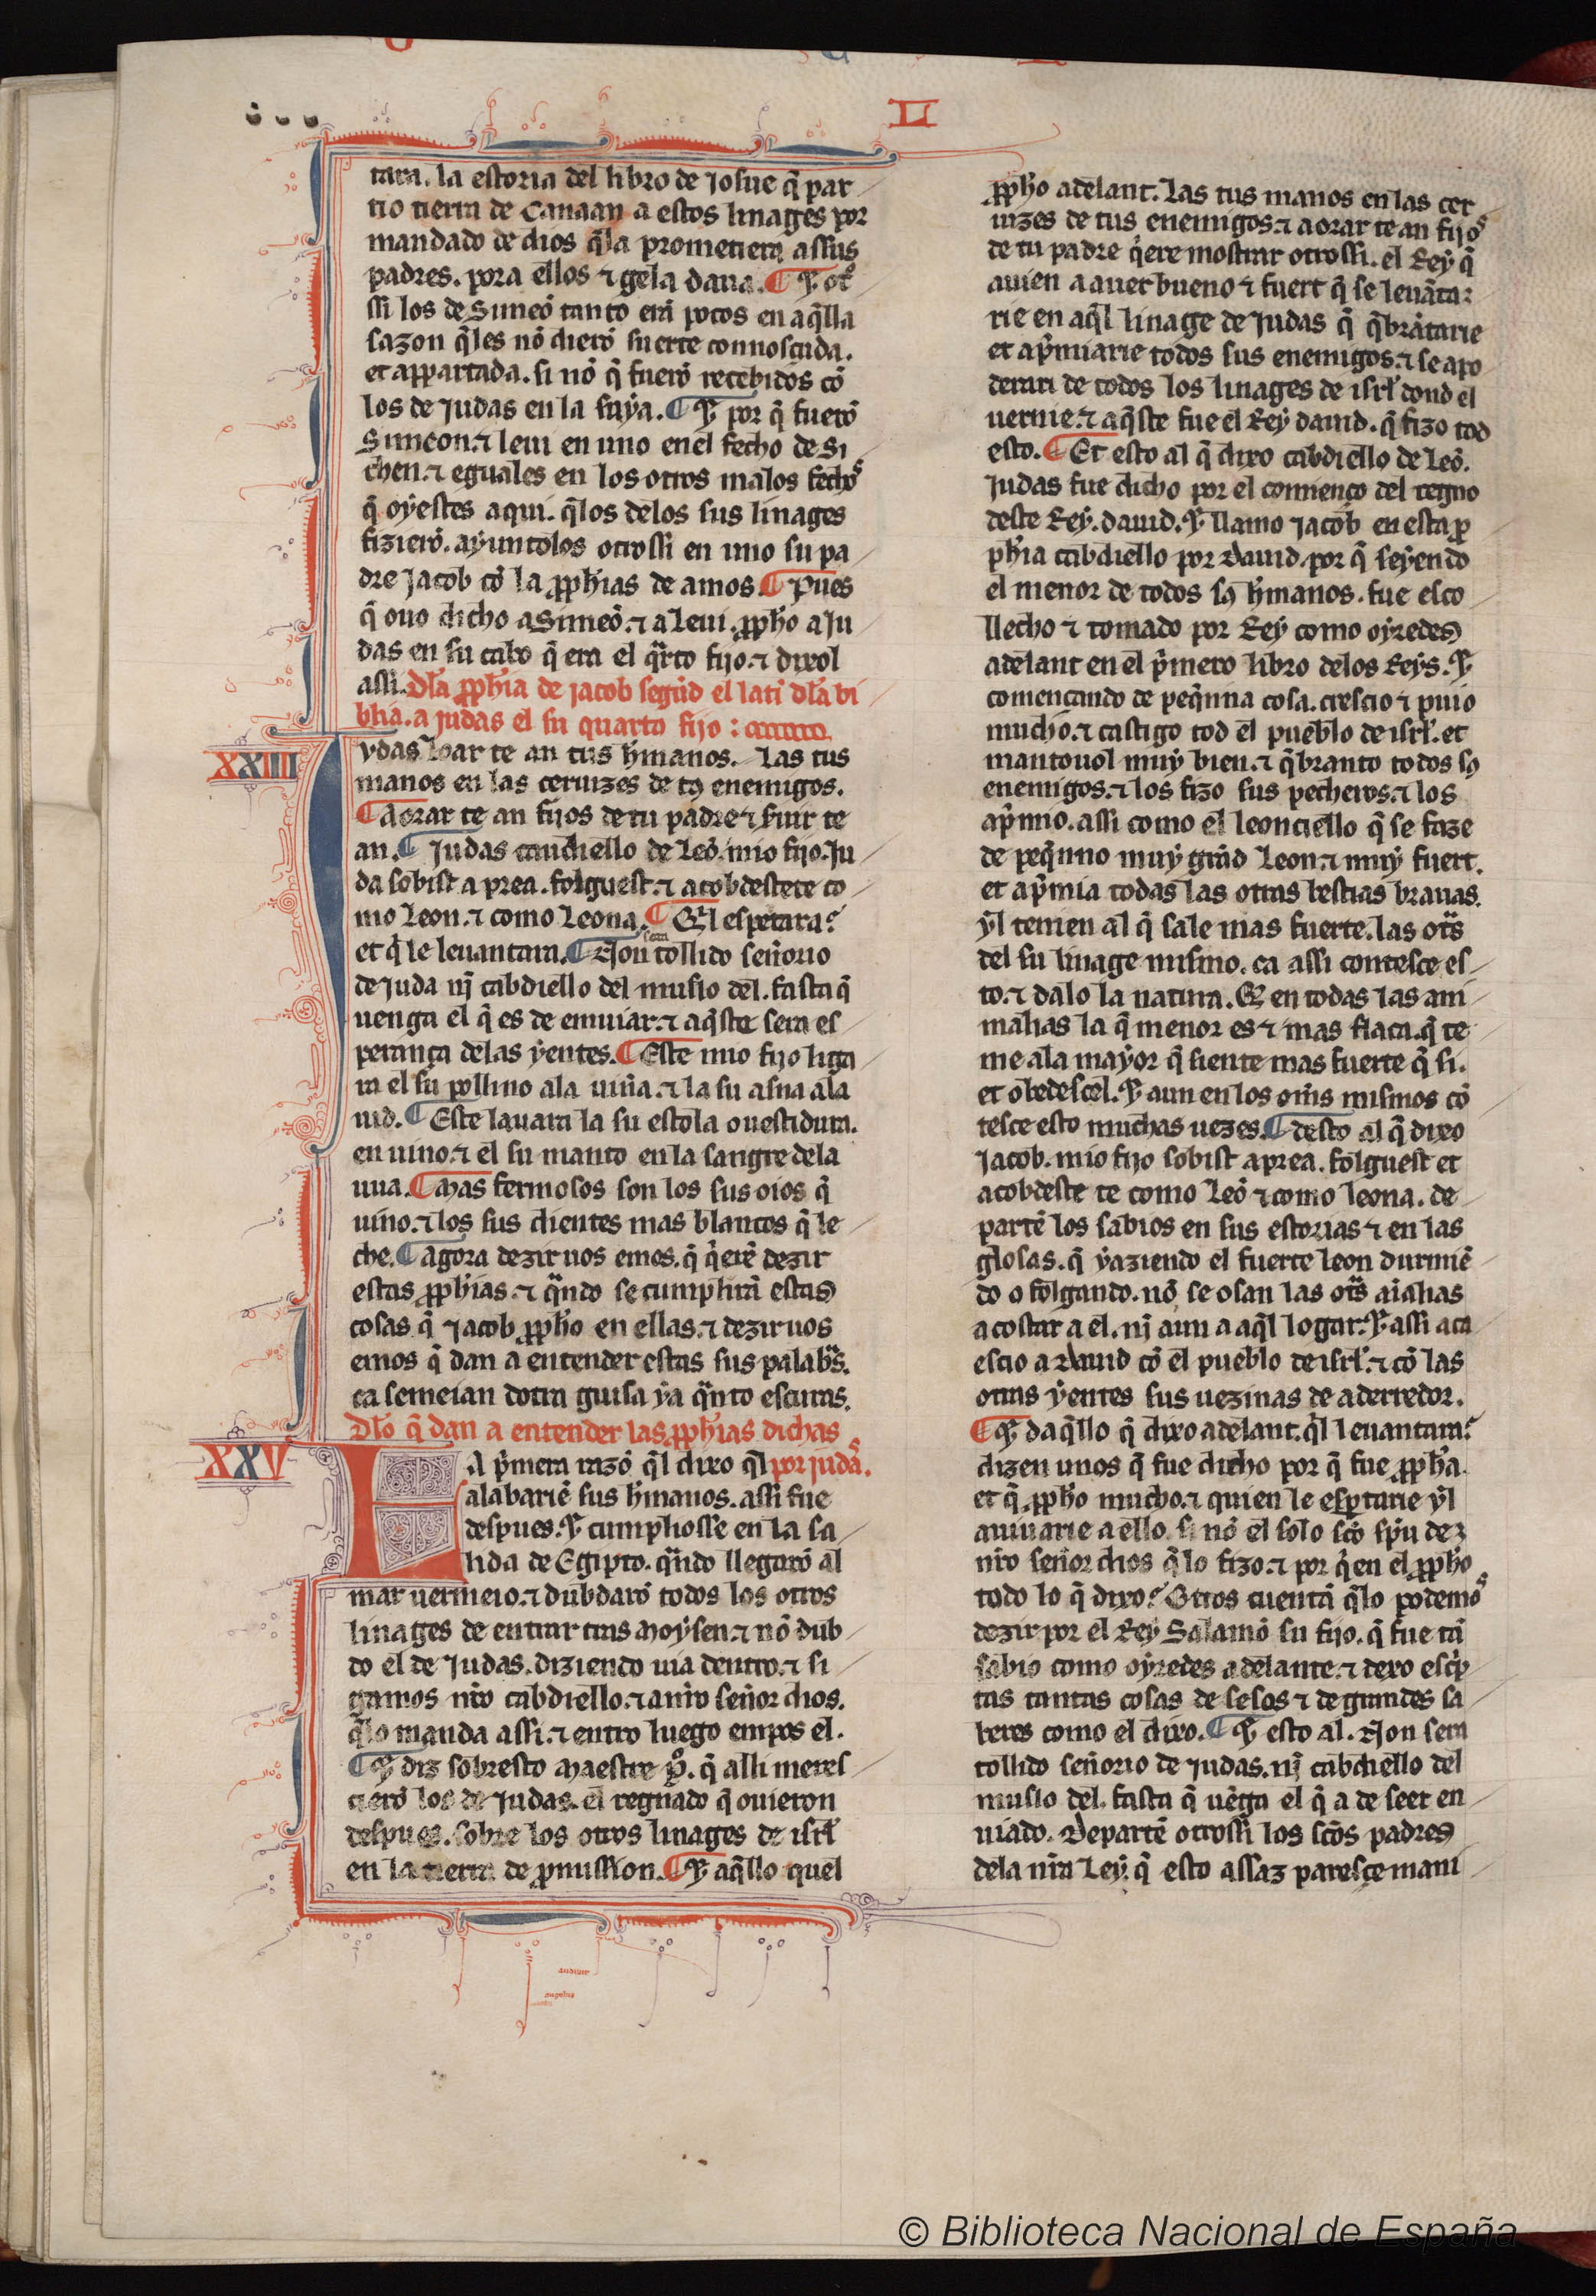 LI
tara. la estoria del libro de Josue q̃ par
tio tierra de Canaan a estos linages por
mandado de dios q̃la prometiera assus
padres. pora ellos ⁊ gela daua. ¶ Y ot°
ssi los de Simeõ tanto erã pocos en aq̃lla
sazon q̃les nõ dierõ suerte connosçuda.
et appartada. si nõ q̃ fuerõ recebidos cõ
los de Judas en la suẏa. ¶ Y por q̃ fuerõ
Simeon. ⁊ leui en uno en el fecho de Si
chen. ⁊ eguales en los otros malos fechos
q̃ oẏestes aqui. q̃los delos sus linages
fizierõ. aẏuntolos otrossi en uno su pa
dre Jacob cõ la ꝓph̃ias de amos. ¶ Pues
q̃ ouo dicho a Simeõ. ⁊ a leui. ꝓph̃o a Ju
das en su cabo q̃ era el q̃rto fijo. ⁊ dixol
assi. Dl̃a ꝓph̃ia de jacob segũd el latĩ dl̃a bi
blia. a judas el su quarto fijo :
XXIIII
Vdas loar te an tus h̃manos. Las tus
manos en las ceruizes de tꝰ enemigos.
¶ Aorar te an fijos de tu padre ⁊ seruir te
an. ¶ Judas caudiello de Leõ. mio fijo. Ju
da sobist a prea. folguest. ⁊ acobdestete co
mo Leon. ⁊ como Leona. ¶ Q̃l espertara?
et q̃ le leuantara. ¶ Non sera tollido señorio
de Juda nj̃ cabdiello del muslo del. fasta q̃
uenga el q̃ es de emuiar. ⁊ aq̃ste sera es
perança delas ẏentes. ¶ Este mio fijo liga
ra el su pollino ala uiña. ⁊ la su asna ala
uid. ¶ Este lauara la su estola o uestidura.
en uino. ⁊ el su manto en la sangre dela
uua. ¶ Mas fermosos son los sus oios q̃
uino. ⁊ los sus dientes mas blancos q̃ le
che. ¶ Agora dezir uos emos. q̃ q̃erẽ dezir
estas ꝓph̃ias. ⁊ q̃ndo se cumplirã estas
cosas q̃ Jacob ꝓph̃o en ellas. ⁊ dezir uos
emos q̃ dan a entender estas sus palab̃s.
ca semeian dotra guisa ẏa q̃nto escuras.
Dl̃o q̃ dan a entender las ꝓph̃ias dichas
XXV
LA p̃mera razõ q̃l dixo q̃l por judas.
alabariẽ sus h̃manos. assi fue
despues. Y cumpliosse en la sa
lida de Egipto. q̃ndo llegarõ al
mar uermeio. ⁊ dubdarõ todos los otros
linages de entrar tras Moẏsen. ⁊ nõ dub
do el de Judas. diziendo uia dentro. ⁊ si
gamos nr̃o cabdiello. ⁊ a nr̃o señor dios.
q̃lo manda assi. ⁊ entro luego empos el.
¶ Y diz sobresto Maestre P̃°. q̃ alli meres
cierõ los de Judas. el regnado q̃ ouieron
despues. sobre los otros linages de isrl̃
en la tierra de ꝓmission. ¶ Y aq̃llo quel
ꝓph̃o adelant. Las tus manos en las cer
uizes de tus enemigos. ⁊ aorar te an fijos
de tu padre q̃ere mostrar otrossi. el Reẏ q̃
auien a auer bueno ⁊ fuert q̃ se leuãta-
rie en aq̃l linage de Judas q̃ q̃brãtarie
et ap̃miarie todos sus enemigos. ⁊ se apo
derari de todos los linages de isrl̃ dond el
uernie. ⁊ aq̃ste fue el Reẏ dauid. q̃ fizo tod
esto. ¶ Et esto al q̃ dixo cabdiello de Leõ.
Judas fue dicho por el comienço del regno
deste Reẏ. dauid. Y llamo Jacob en esta ꝓ
ph̃ia cabdiello por Dauid. por q̃ seẏendo
el menor de todos sꝰ h̃manos. fue esco
llecho ⁊ tomado por Reẏ como oẏredes
adelant en el p̃mero libro delos Reẏs. Y
començando de peq̃nna cosa. crescio ⁊ puio
mucho. ⁊ castigo tod el pueblo de isrl̃. et
mantouol muẏ bien. ⁊ q̃branto todos sꝰ
enemigos. ⁊ los fizo sus pecheros. ⁊ los
ap̃mio. assi como el leonciello q̃ se faze
de peq̃nno muẏ grãd Leon. ⁊ muẏ fuert.
et ap̃mia todas las otras bestias brauas.
ẏl temen al q̃ sale mas fuerte. las ot̃s
del su linage mismo. ca assi contesce es
to. ⁊ dalo la natura. Q̃ en todas las ani
malias la q̃ menor es ⁊ mas flaca. q̃ te
me ala maẏor q̃ siente mas fuerte q̃ si.
et obedescel. Y aun en los om̃s mismos cõ
tesce esto muchas uezes. ¶ Desto al q̃ dixo
Jacob. mio fijo sobist a prea. folguest et
acobdeste te como Leõ ⁊ como leona. de
partẽ los sabios en sus estorias ⁊ en las
glosas. q̃ ẏaziendo el fuerte leon durmiẽ
do o folgando. nõ se osan las ot̃s aĩalias
acostar a el. nj̃ aun a aq̃l logar. Y assi aca
escio a Dauid cõ el pueblo de isrl̃. ⁊ cõ las
otras ẏentes sus uezinas de aderredor.
¶ Y daq̃llo q̃ dixo adelant. q̃l leuantara?
dizen unos q̃ fue dicho por q̃ fue ꝓph̃a.
et q̃ ꝓph̃o mucho. ⁊ quien le esp̃tarie ẏl
auiuarie a ello. si nõ el solo sc̃o sp̃u de
nr̃o señor dios q̃lo fizo. ⁊ por q̃en el ꝓph̃o
todo lo q̃ dixo? Otros cuentã q̃lo podemos
dezir por el Reẏ Salamõ su fijo. q̃ fue tã
sabio como oẏredes adelante. ⁊ dexo esc̃p
tas tantas cosas de sesos ⁊ de grandes sa
beres como el dixo. ¶ Y esto al. Non sera
tollido señorio de Judas. nj̃ cabdiello del
muslo del. fasta q̃ uẽga el q̃ a de seer en
uiado. Departẽ otrossi los sc̃os padres
dela nr̃a Leẏ. q̃ esto assaz paresçe mani
© Biblioteca Nacional de España